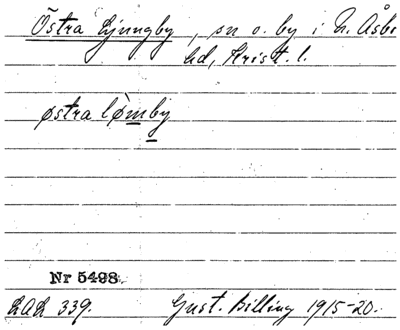 Östra Ljungby, sn o. by i N. Åsbo
hd, Krist. l.
østra lø̀mby
Nr 5498
LAL 339. Gust. Billing 1915-20.